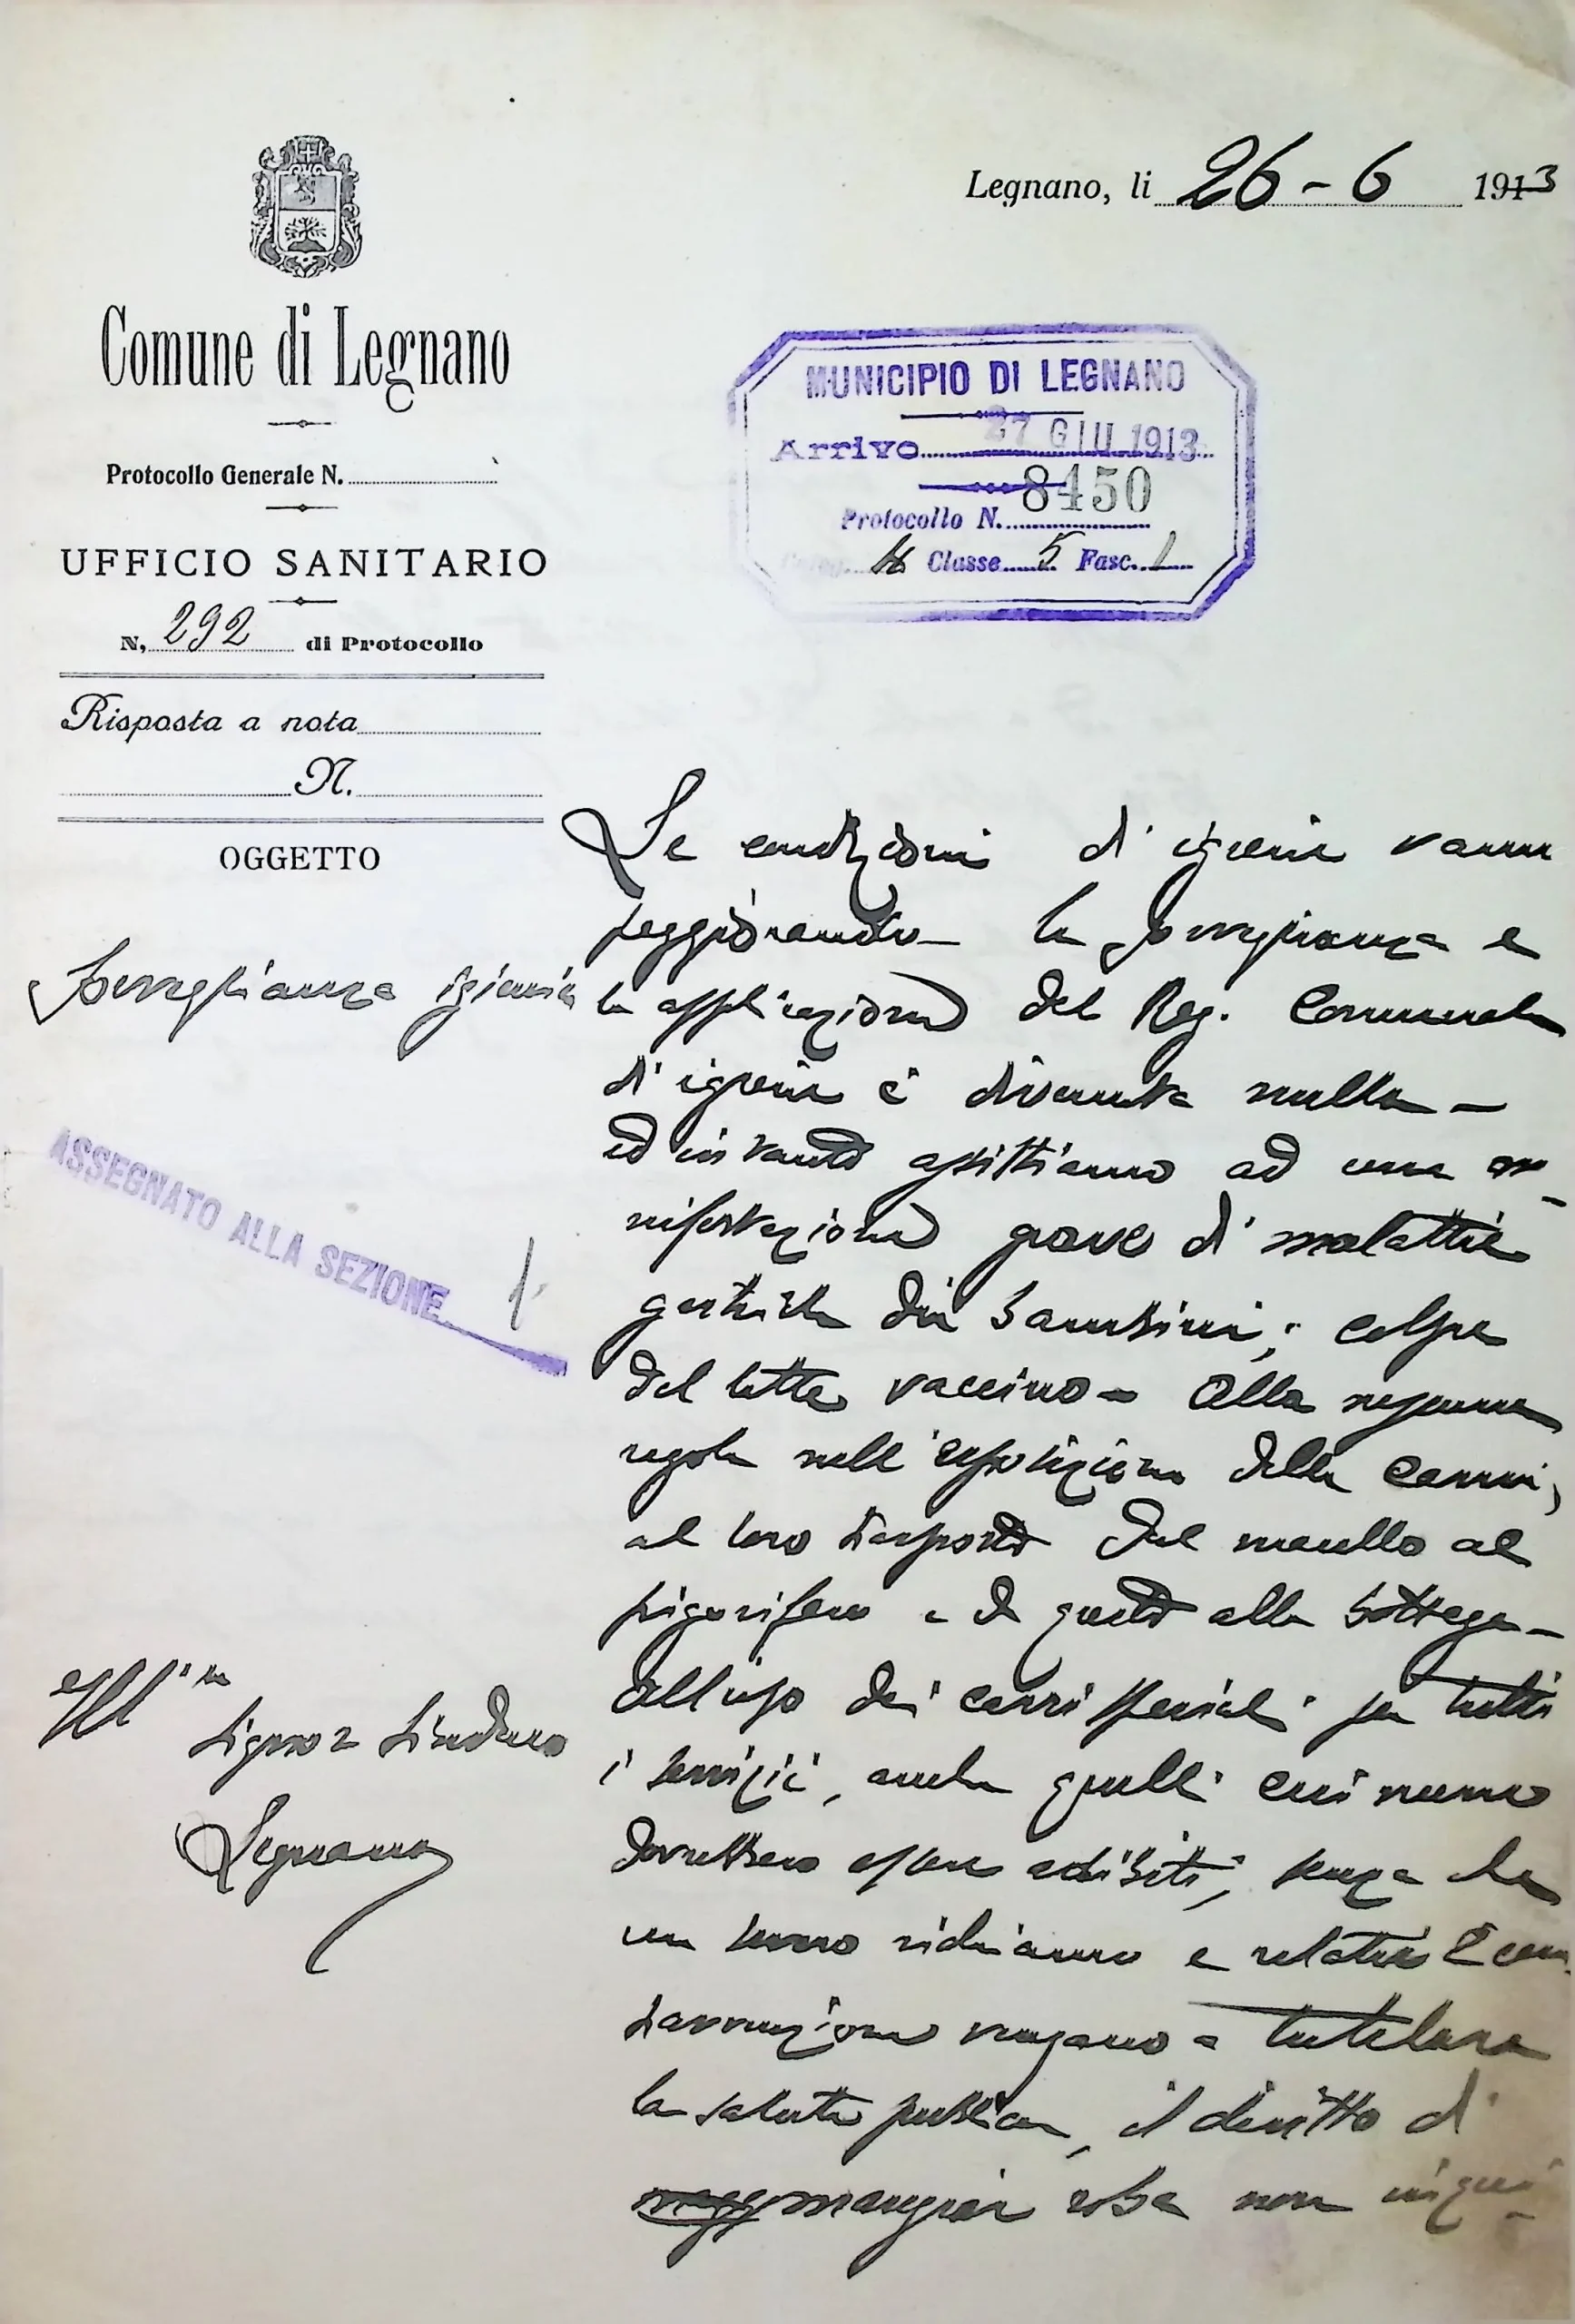 Legnano, li 26-6 1913
Comune di Legnano
Protocollo Generale N.
UFFICIO SANITARIO
N. 292 di Protocollo
Risposta a nota
N.
OGGETTO
Sorveglianza igienica
MUNICIPIO DI LEGNANO
Arrivo 27 GIU 1913
Protocollo N. 8450
Categ. 4 Classe 5 Fasc. 1
ASSEGNATO ALLA SEZIONE 1
Ill.mo
Signor Sindaco
Legnano
Le condizioni d'igiene vanno
peggiorando - la sorveglianza e
la applicazione del Reg. Comunale
d'igiene è divenuta nulla -
ed intanto assistiamo ad una ma-
nifestazione grave di malattie
gastriche dei bambini; colpa
del latte vaccino - Alla nessuna
regola nell'esposizione delle carni,
al loro trasporto dal macello al
frigorifero e da questo alla bottega -
All'uso dei carri speciali per tutti
i servizi, anche quelli cui meno
dovrebbero essere adibiti, senza che
un severo richiamo e relativa con-
travvenzione vengano a tutelare
la salute pubblica, il diritto di
mangiar roba non inqui-